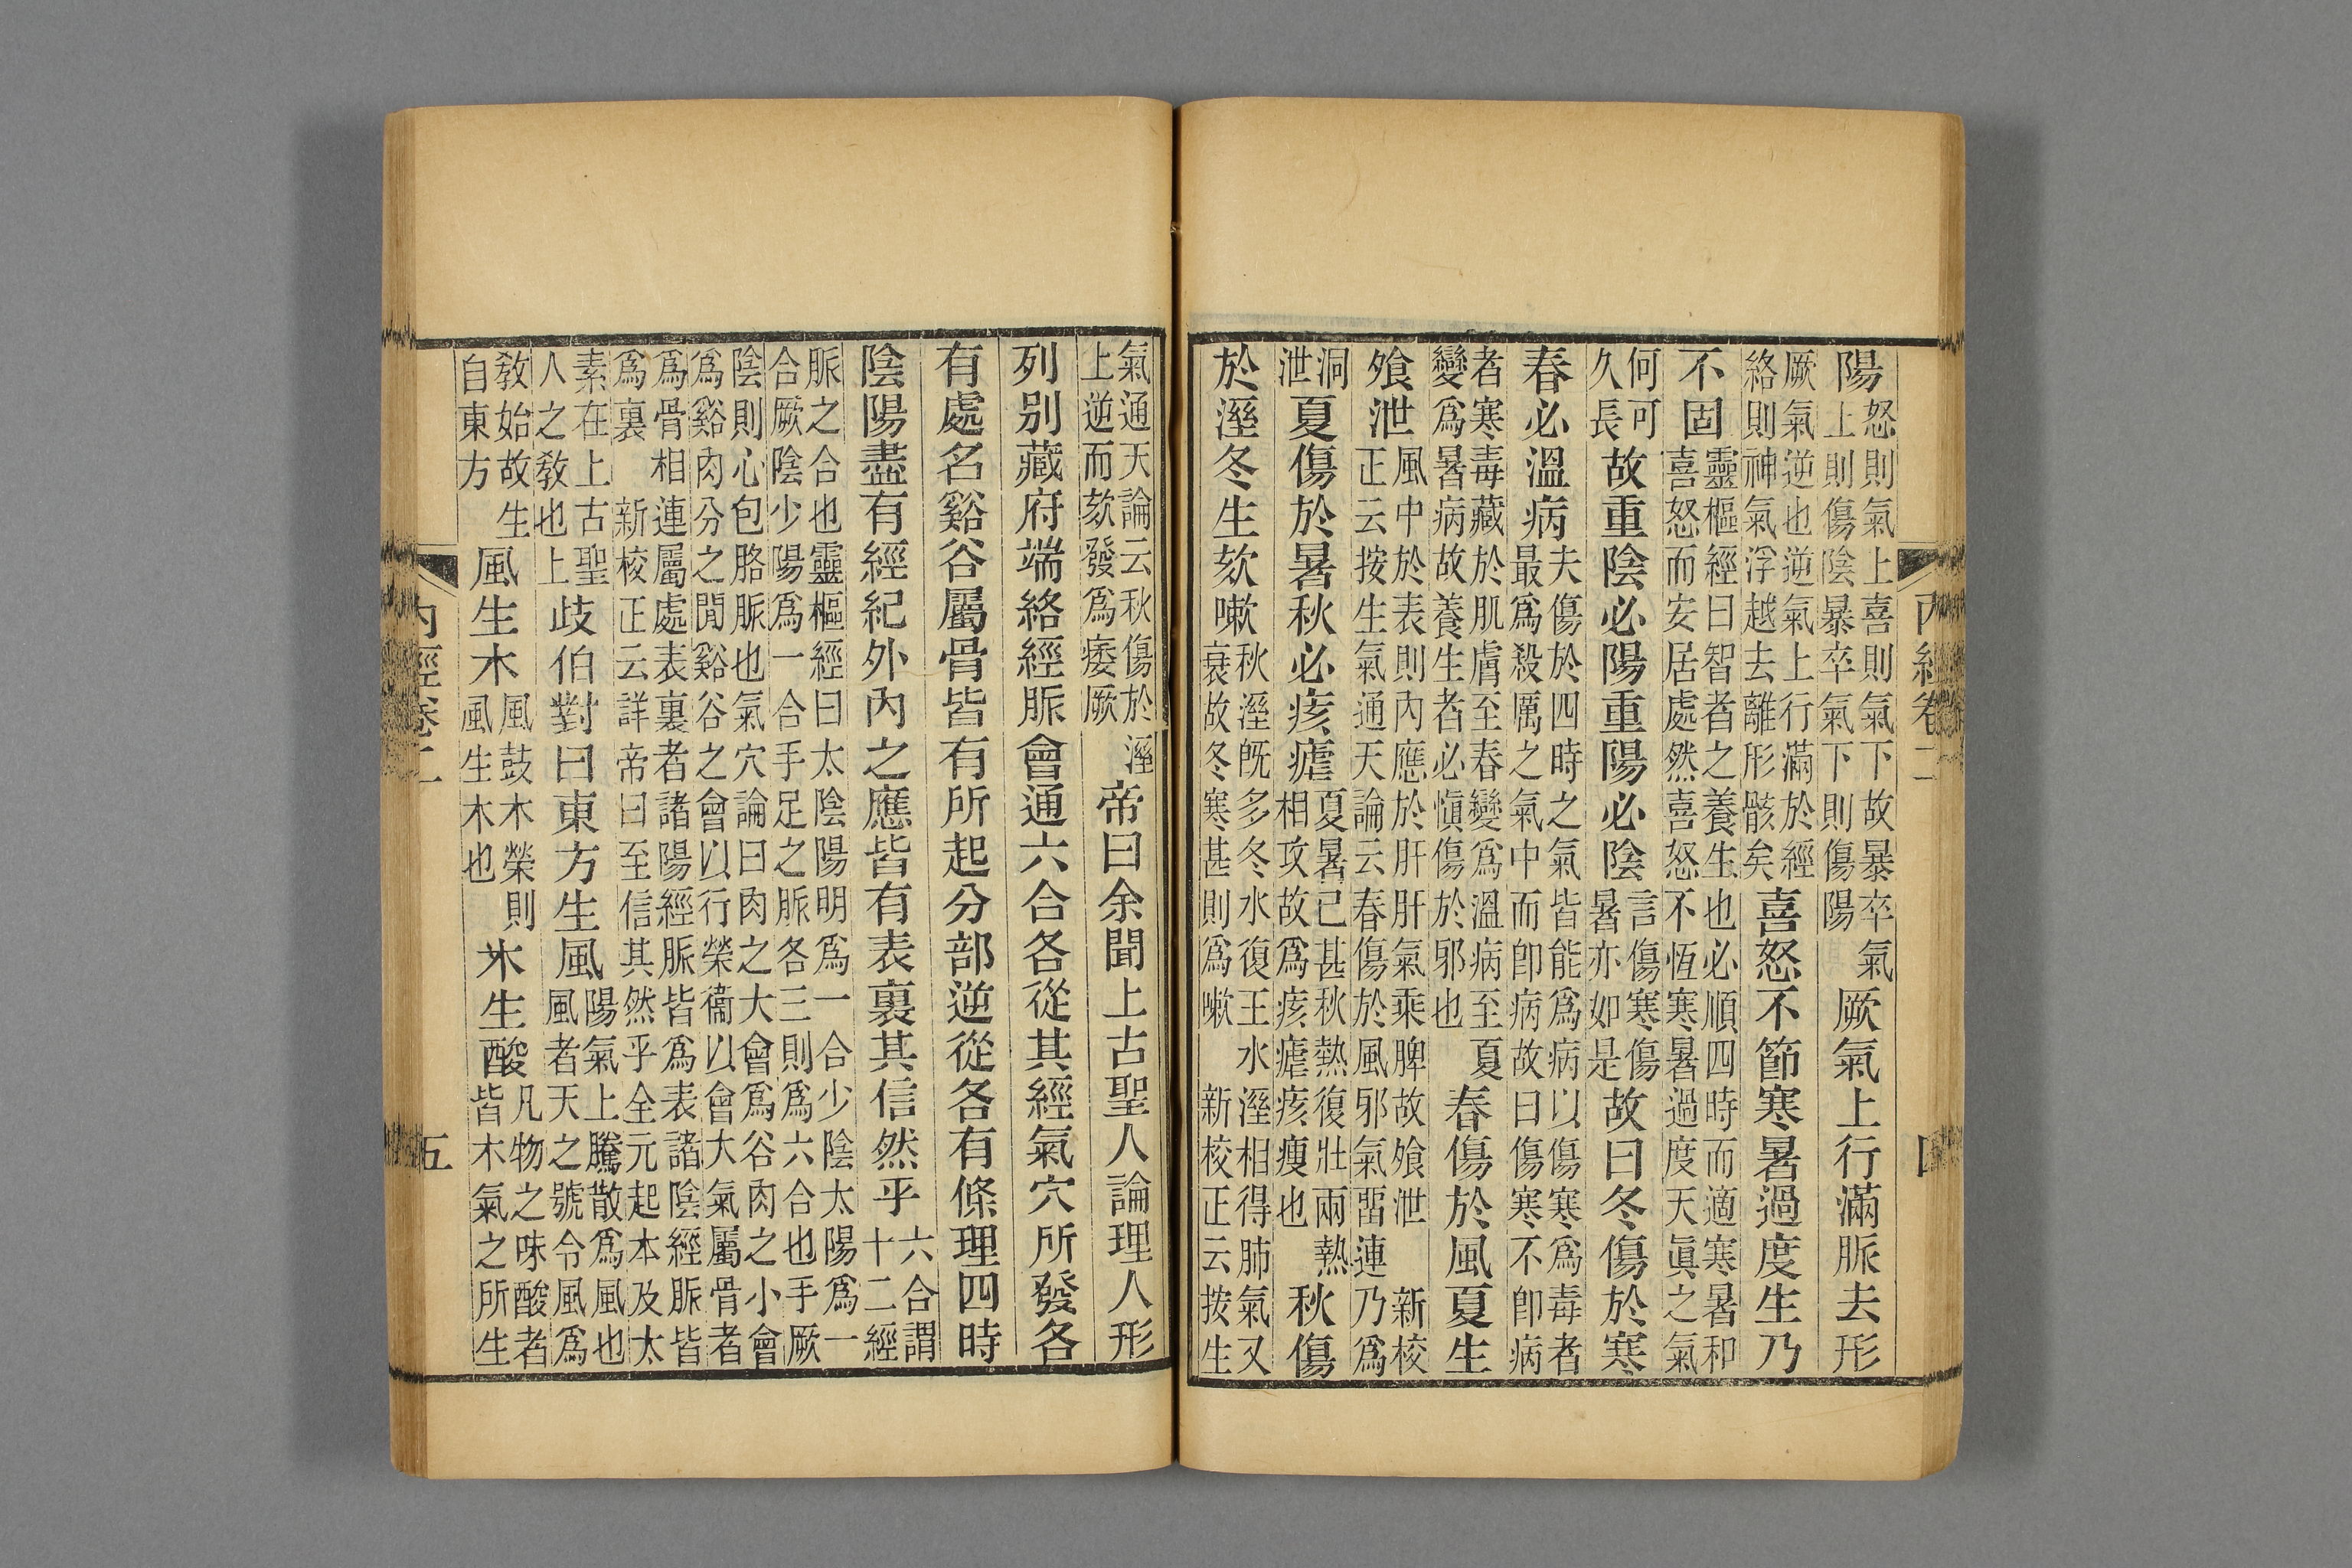 內經卷二 四
陽怒則氣上喜則氣下故暴卒氣上則傷陰暴卒氣下則傷陽厥氣上行滿脈去形
厥氣逆也逆氣上行滿於經絡則神氣浮越去離形骸矣喜怒不節寒暑過度生乃
不固靈樞經曰智者之養生也必順四時而適寒暑和喜怒而安居處然喜怒不恆寒暑過度天眞之氣
何可久長故重陰必陽重陽必陰言傷寒傷暑亦如是故曰冬傷於寒
春必溫病夫傷於四時之氣皆能爲病以傷寒爲毒者最爲殺厲之氣中而卽病故曰傷寒不卽病
者寒毒藏於肌膚至春變爲溫病至夏變爲暑病故養生者必愼傷於邪也春傷於風夏生
飧泄風中於表則內應於肝肝氣乘脾故飧泄 新校正云按生氣通天論云春傷於風邪氣畱連乃爲
洞泄夏傷於暑秋必痎瘧夏暑已甚秋熱復壯兩熱相攻故爲痎瘧痎瘦也秋傷
於溼冬生欬嗽秋溼旣多冬水復王水溼相得肺氣又衰故冬寒甚則爲嗽 新校正云按生
氣通天論云秋傷於溼上逆而欬發爲痿厥帝曰余聞上古聖人論理人形
列別藏府端絡經脈會通六合各從其經氣穴所發各
有處名谿谷屬骨皆有所起分部逆從各有條理四時
陰陽盡有經紀外內之應皆有表裏其信然乎六合謂十二經
脈之合也靈樞經曰太陰陽明爲一合少陰太陽爲一合厥陰少陽爲一合手足之脈各三則爲六合也手厥
陰則心包胳脈也氣穴論曰肉之大會爲谷肉之小會爲谿肉分之閒谿谷之會以行榮衞以會大氣屬骨者
爲骨相連屬處表裏者諸陽經脈皆爲表諸陰經脈皆爲裏 新校正云詳帝曰至信其然乎全元起本及太
素在上古聖人之教也上歧伯對曰東方生風陽氣上騰散爲風也風者天之號令風爲
教始故生自東方風生木風鼓木榮則風生木也木生酸凡物之味酸者皆木氣之所生
內經卷二 五